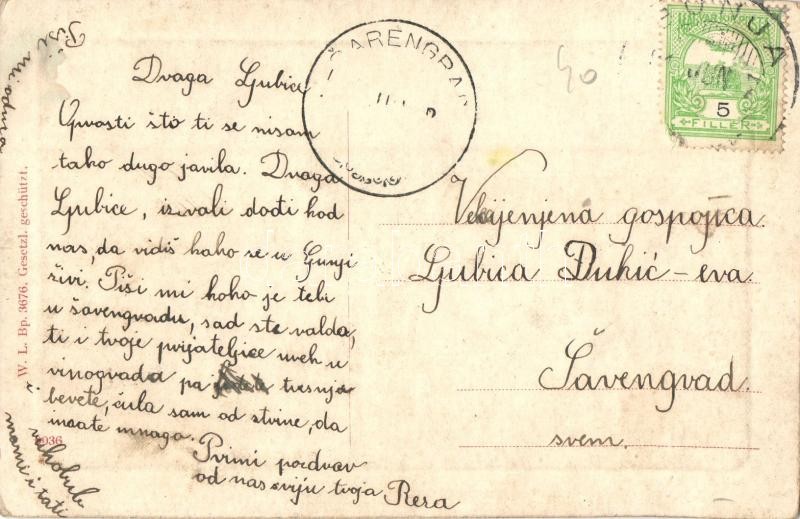 Piši mi odma
Draga Ljubice
Oprosti što ti se nisam
tako dugo javila. Draga
Ljubice, izvoli dođi kod
nas, da vidiš kako se u Gunji
živi. Piši mi koko je tebi
u šarengradu, sad ste valda,
ti i tvoje prijateljice uvek u
vinogradu pa trešnje
berete, čula sam od strine, da
imate mnogo.
Primi pozdrav
od nas sviju tvoja Rera
mami i tati
W. L. Bp. 3676. Gesetzl. geschützt.
936
ŠARENGRAD
GUNJA
JUN
5
FILLER
40
Veleijenjena gospojica.
Ljubica Đukić-eva.
Šarengrad.
srem.